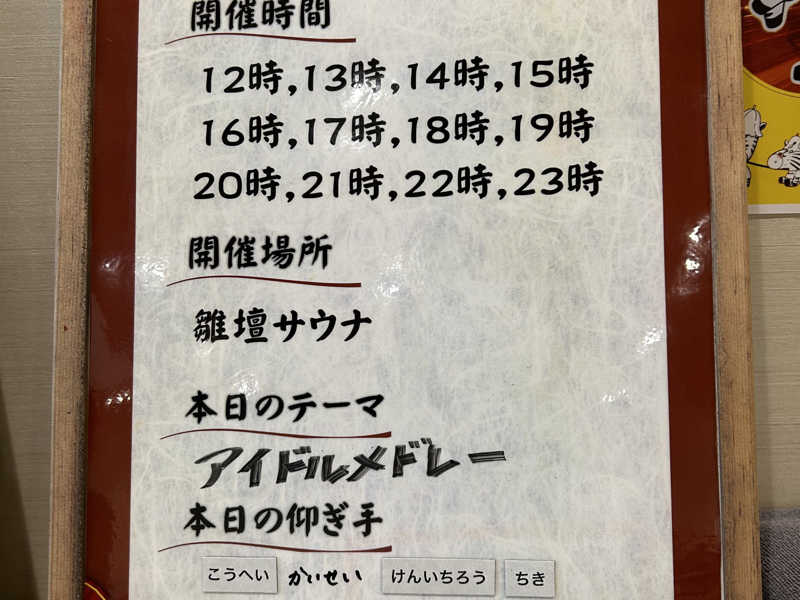 開催時間
12時,13時,14時,15時
16時,17時,18時,19時
20時,21時,22時,23時
開催場所
雛壇サウナ
本日のテーマ
アイドルメドレー
本日の仰ぎ手
こうへい かいせい けんいちろう ちき